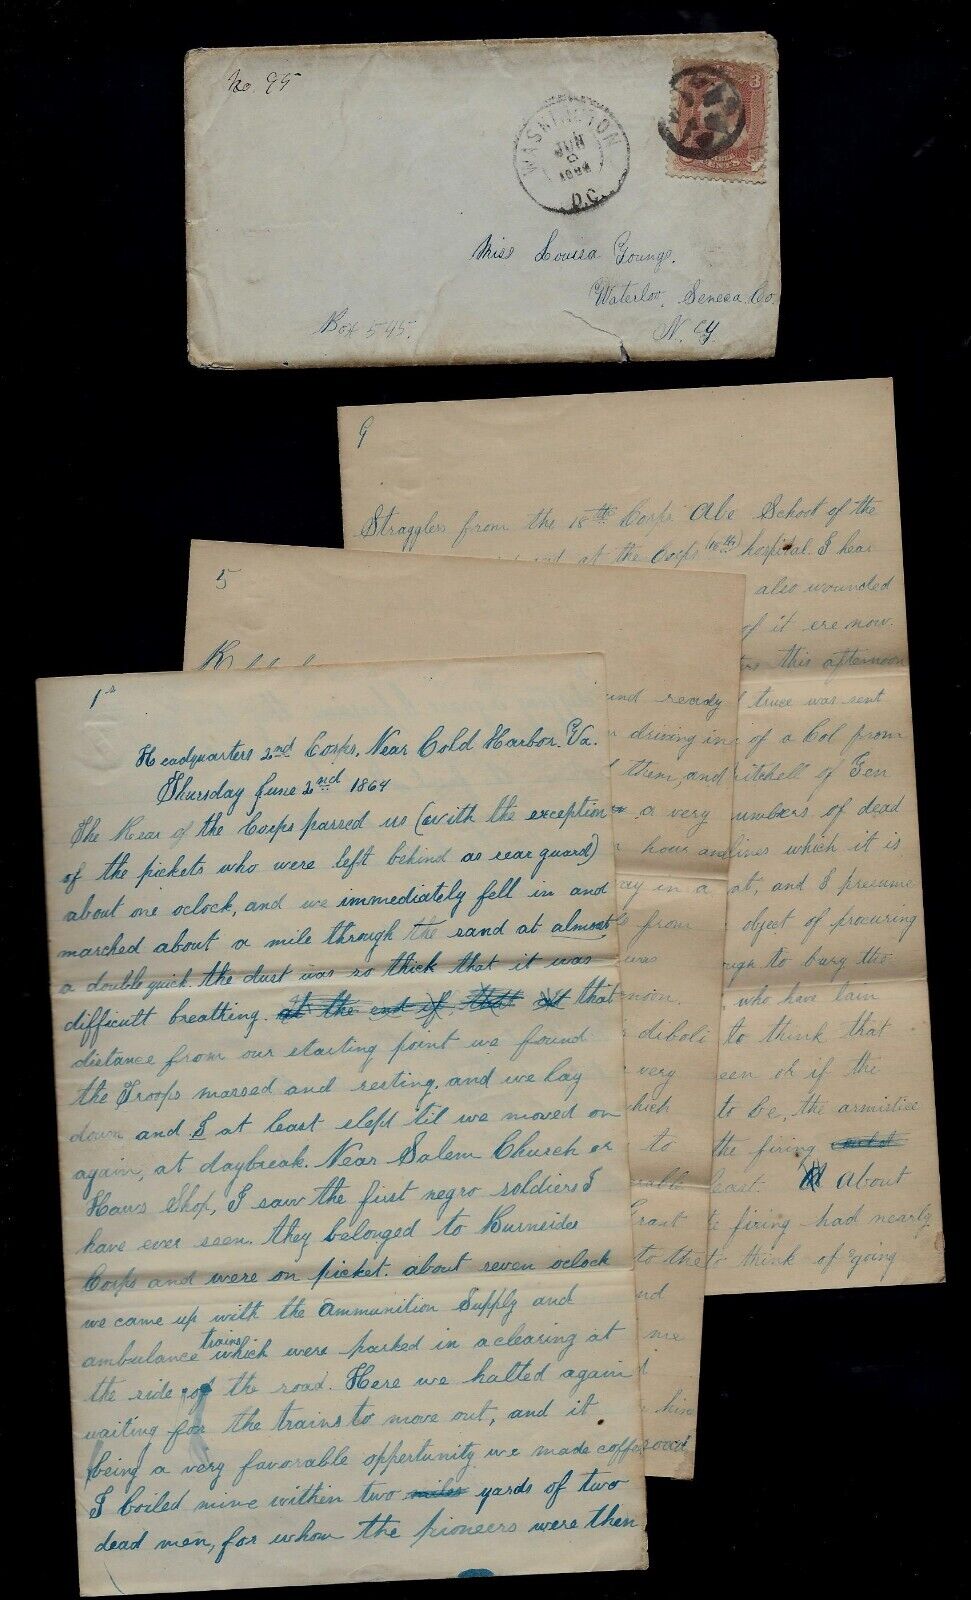 No. 95
WASHINGTON
JUN
D.C.
3
CENTS
Miss Louisa Younge.
Waterloo, Seneca Co.
N. Y.
Box 545.
9
Stragglers from the 18th Corps Abe School of the
at the Corps (18th) hospital. I hear
also wounded
of it ere now.
this afternoon
truce was sent
of a Col from
Mitchell of Gen
numbers of dead
lines which it is
at, and I presume
object of procuring
to bury the
who have lain
to think that
een or if the
to be, the armistice
the firing
east about
firing had nearly
to think of going
5
and ready
driving in
them, and
a very
hour an
ay in a
from
was
noon.
diboli
very
which
to
Grant
to the
nd
me
him
1st
Headquarters 2nd Corps, Near Cold Harbor Va.
Thursday June 2nd 1864
The Rear of the Corps passed us (with the exception
of the pickets who were left behind as rear guard)
about one oclock, and we immediately fell in and
marched about a mile through the sand at almost
a double quick. the dust was so thick that it was
difficult breathing. at the end if that at that
distance from our starting point we found
the Troops massed and resting, and we lay
down and I at least slept 'til we moved on
again, at daybreak. Near Salem Church or
Haws Shop, I saw the first negro soldiers I
have ever seen. they belonged to Burnsides
Corps and were on picket. about seven oclock
we came up with the Ammunition Supply and
ambulance trains which were parked in a clearing at
the side of the road. Here we halted again
waiting for the trains to move out, and it
being a very favorable oppertunity we made coffee
I boiled mine within two miles yards of two
dead men, for whom the pioneers were then